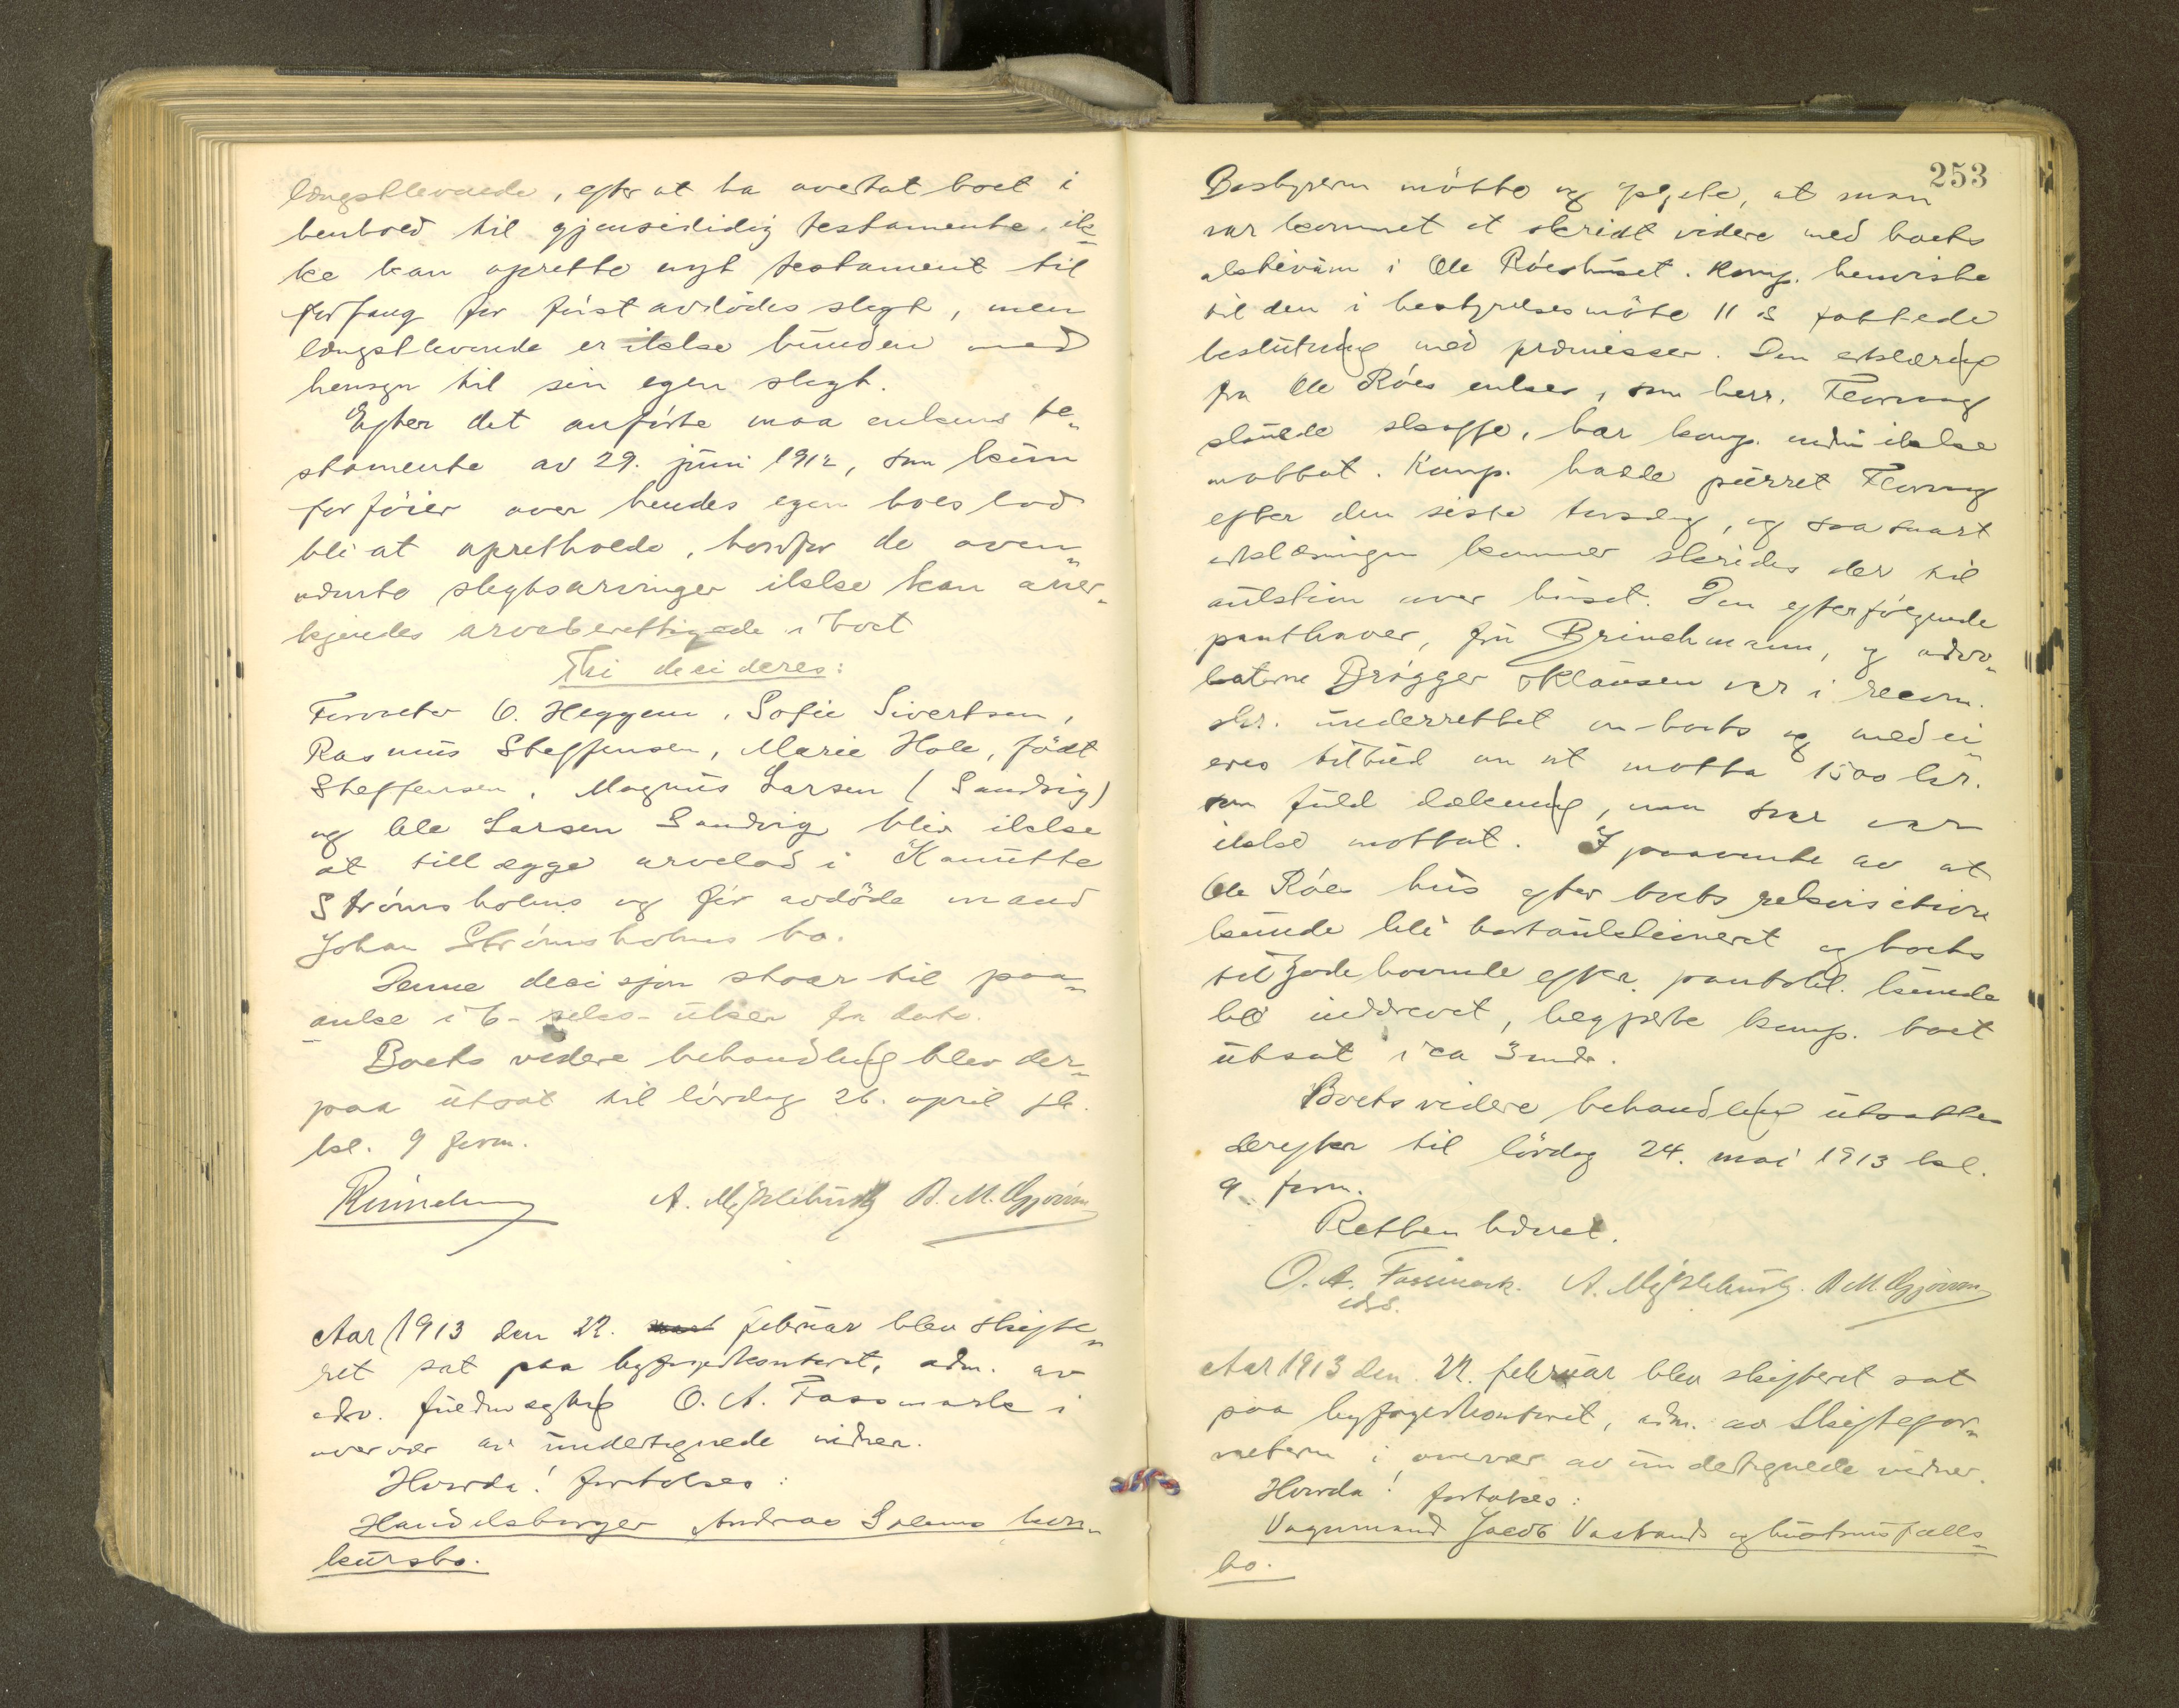 længstlevende, efter at ha overtat boet i
henhold til gjensididig testamente, ik-
ke kan oprette nyt testament til
forfang for først avdødes slegt, men
længstlevende er ikke bunden med
hensyn til sin egen slegt.
Efter det anførte maa enkens te-
stamente av 29. juni 1912, som kun
forføier over hendes egen boeslod
bli at opretholde, hvorfor de oven-
nævnte slegtsarvinger ikke kan aner-
kjendes arveberettigede i boet
Thi decideres:
O. Heggem, Sofie Sivertsen,
Rasmus Steffensen, Marie Hole, født
Steffensen, Magnus Larsen (Sandvig)
og Ole Larsen Sandvig blir ikke
at tillægge arvelod i Kanutte
Strømsholms og før avdøde mand
Johan Strømsholms bo.
Denne decisjon staar til paa-
anke i 6 - seks - uker fra dato.
Boets videre behandling blev der-
paa utsat til lørdag 26. april
kl. 9 form.
A. M.
Aar 1913 den 22. februar blev skifte-
ret sat paa byfogedkontoret, adm. av
edsv. fuldmægtig O. A. Fasmark i
overvær av undertegnede vidner.
Hvorda! foretokes:
Handelsborger Andreas Solems kon-
kursbo.
253
Bestyreren møtte og oplyste, at man
var kommet et skridt videre med boets
aktivum i Ole Róeshuset. Komp. henviste
til den i bestyrelsesmøte 11 ds fattede
beslutning med præmisser. Den erklæring
fra Ole Róes enke, som herr
skulde skaffe, har komp. endnu ikke
mottat. Komp. hadde purret
efter den siste torsdag, og saa snart
erklæringen kommer skrides der til
auktion over huset. Den efterfølgende
panthaver, fru Brinchmann, og advo-
katerne Brøgger & Klausen var i recom.
skr. underrettet om boets og medei-
eres tilbud om at motta 1500 kr.
som fuld dækning, men svar var
ikke mottat. I paavente av at
Ole Róes hus efter boets rekvisition
kunde bli bortauktioneret og boets
tilgodehavende efter pantobl. kunde
bli inddrevet, begjærte komp. boet
utsat i ca 3 mdr.
Boets videre behandling utsattes
derefter til lørdag 24. mai 1913 kl.
9 form.
Retten hævet.
O. A. Fasmark. A. M.
edsv.
Aar 1913 den 22. februar blev skifteret sat
paa byfogedkontoret, adm. av skiftefor-
valteren i overvær av undertegnede vidner.
Hvorda! foretokes:
Vognmand Jacob Vastands og hustrus fælles-
bo.